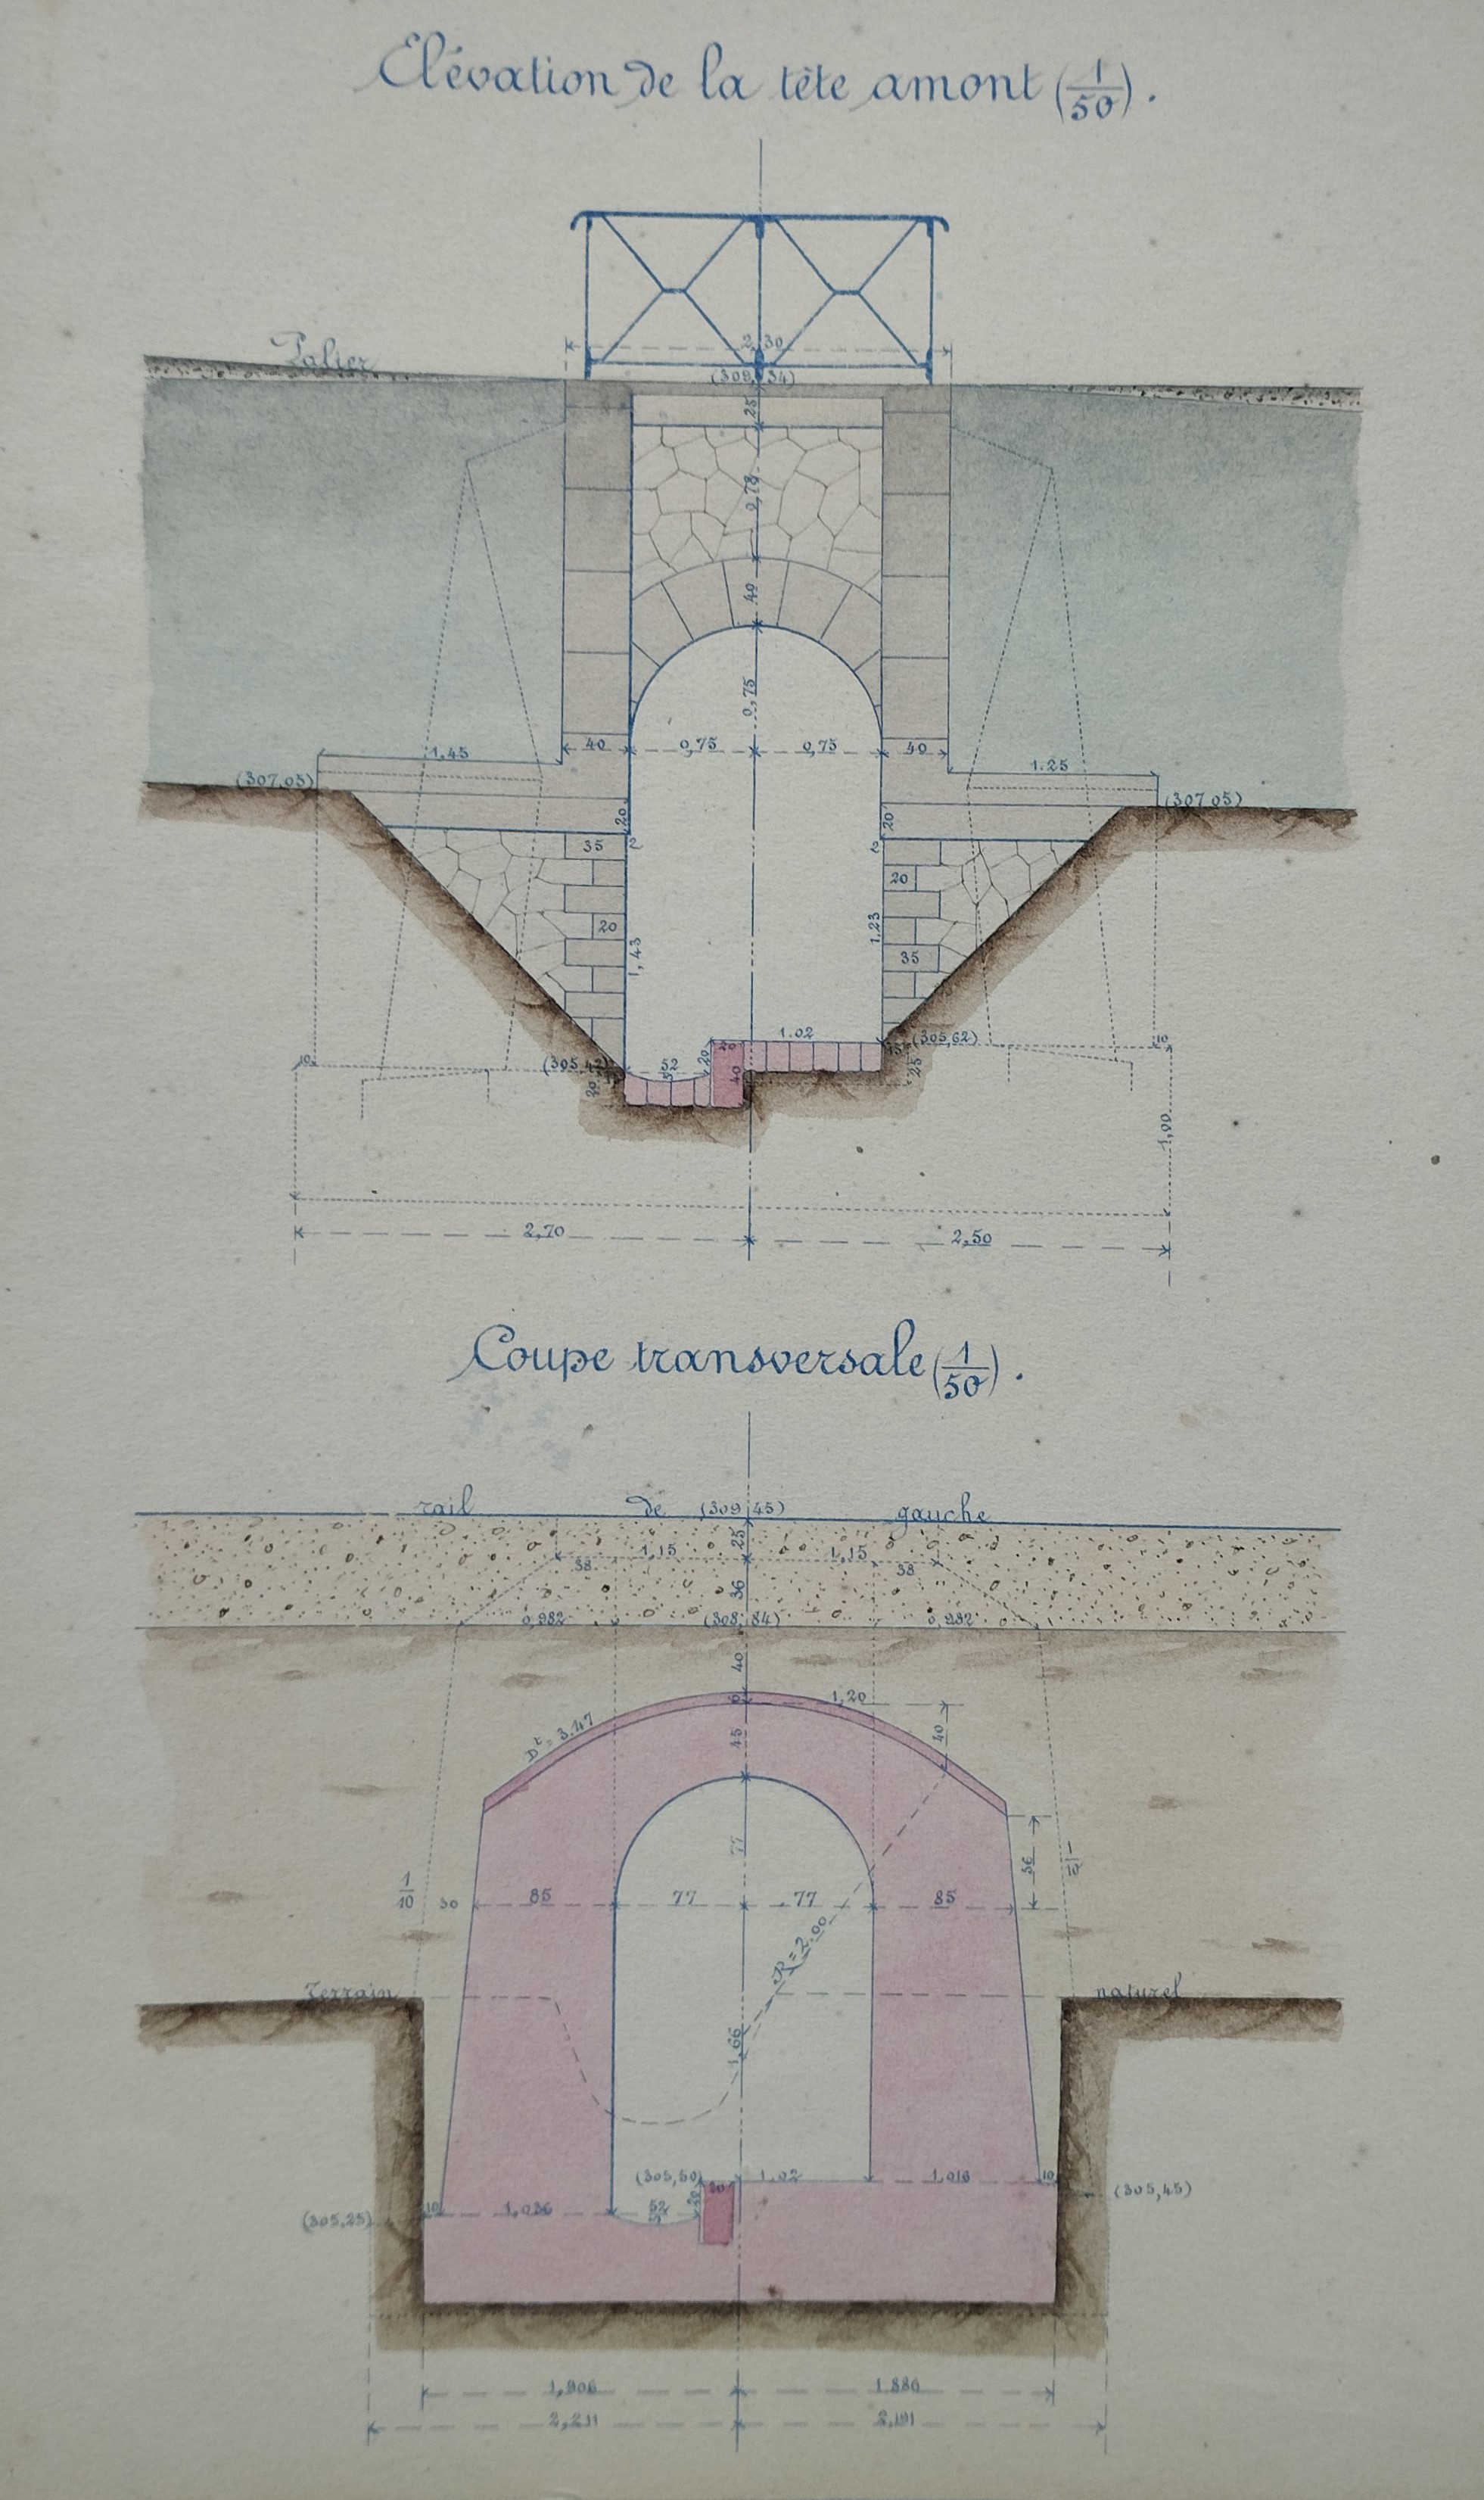 Elévation de la tête amont (1/50).
2,30
Palier
(309,34)
25
0,78
40
0,75
40 0,75 0,75 40
1,45
1.25
(307,05)
(307,05)
20
20
2
2
35
20
20
35
1,43
1,23
1.02
(305,62)
(305,42)
52
5
20
20
40
20
15
25
10
10
1,00
2,70
2,50
Coupe transversale (1/50).
rail de (309,45) gauche
25
1,15 1,15
38 38
36
0,982 (308,84) 0,982
40
6
1,20
Dt = 3.47
45
40
77
56
1/10
1/10
30 85 77 77 85
R = 2.00
Terrain naturel
1,66
(305,50) 1.02 1,016 10
20
20
(305,45)
10 1,036 52
5
(305,25)
1,906 1.886
2,211 2,191